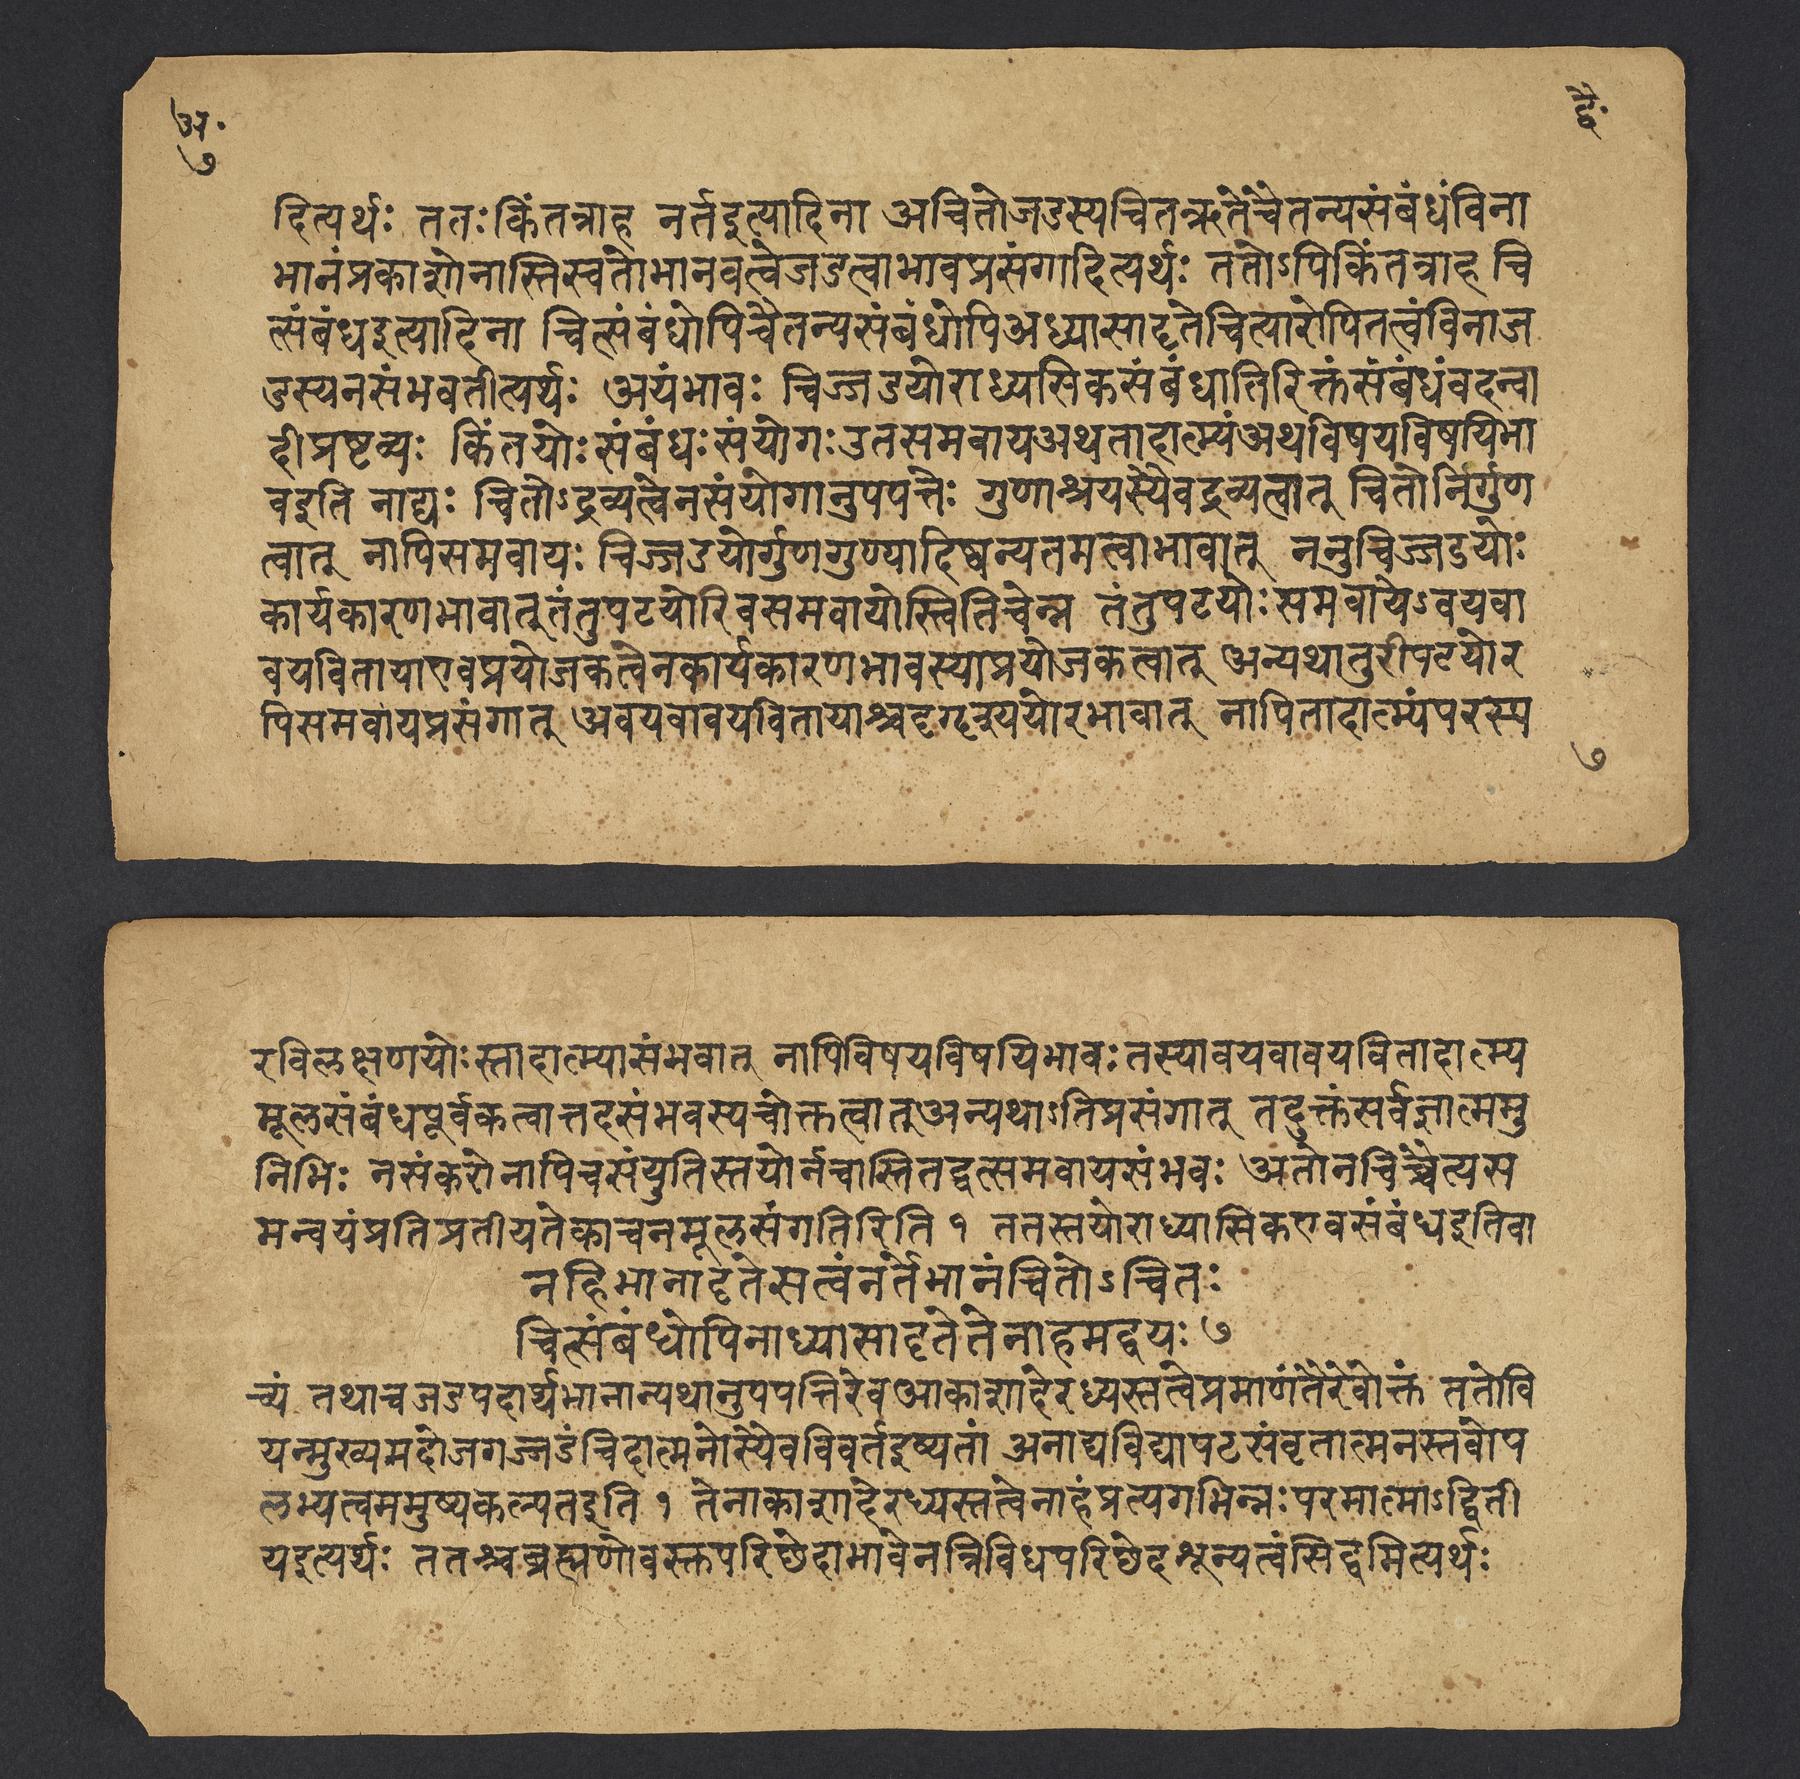 अ॰
७
द्वै॰
दित्यर्थः ततःकिंतत्राह नर्तइत्यादिना अचितोजडस्यचितऋतेचैतन्यसंबंधंविना
भानंप्रकाशोनास्तिस्वतोभानवत्वेजडत्वाभावप्रसंगादित्यर्थः ततोऽपिकिंतत्राह चि
त्संबंधइत्यादिना चित्संबंधोपिचैतन्यसंबंधोपिअध्यासादृतेचित्यारोपितत्वंविनाज
डस्यनसंभवतीत्यर्थः अयंभावः चिज्जडयोराध्यसिकसंबंधातिरिक्तंसंबंधंवदन्वा
दीप्रष्टव्यः किंतयोःसंबंधःसंयोगःउतसमवायअथतादात्म्यंअथविषयविषयिभा
वइति नाद्यः चितोऽद्रव्यत्वेनसंयोगानुपपत्तेः गुणाश्रयस्यैवद्रव्यत्वात् चितोर्निर्गुण
त्वात् नापिसमवायः चिज्जडयोर्गुणगुण्यादिष्वन्यतमत्वाभावात् ननुचिज्जडयोः
कार्यकारणभावात्तंतुपटयोरिवसमवायोस्त्वितिचेन्न तंतुपटयोःसमवायेऽवयवा
वयवितायाएवप्रयोजकत्वेनकार्यकारणभावस्याप्रयोजकत्वात् अन्यथातुरीपटयोर
पिसमवायप्रसंगात् अवयवावयवितायाश्चदृग्दृश्ययोरभावात् नापितादात्म्यंपरस्प
७
रविलक्षणयोःस्तादात्म्यासंभवात् नापिविषयविषयिभावःतस्यावयवावयवितादात्म्य
मूलसंबंधपूर्वकत्वात्तदसंभवस्यचोक्तत्वात्अन्यथाऽतिप्रसंगात् तदुक्तंसर्वज्ञात्ममु
निभिः नसंकरोनापिचसंयुतिस्तयोर्नचास्तितद्वत्समवायसंभवः अतोनचिच्चैत्यस
मन्वयंप्रतिप्रतीयतेकाचनमूलसंगतिरिति १ ततस्तयोराध्यासिकएवसंबंधइतिवा
नहिभानादृतेसत्वंनर्तेभानंचितोऽचितः
चित्संबंधोपिनाध्यासादृतेतेनाहमद्वयः ७
च्यं तथाचजडपदार्थभानान्यथानुपपत्तिरेवआकाशादेरध्यस्तत्वेप्रमाणंतैरेवोक्तं ततोवि
यन्मुख्यमदोजगज्जडंचिदात्मनोस्यैवविवर्तइष्यतां अनाद्यविद्यापटसंवृतात्मनस्तवोप
लभ्यत्वममुष्यकल्पतइति १ तेनाकाशादेरध्यस्तत्वेनाहंप्रत्यगभिन्नःपरमात्माऽद्विती
यइत्यर्थः ततश्चब्रह्मणोवस्तपरिछेदाभावेनत्रिविधपरिछेदशून्यत्वंसिद्धमित्यर्थः